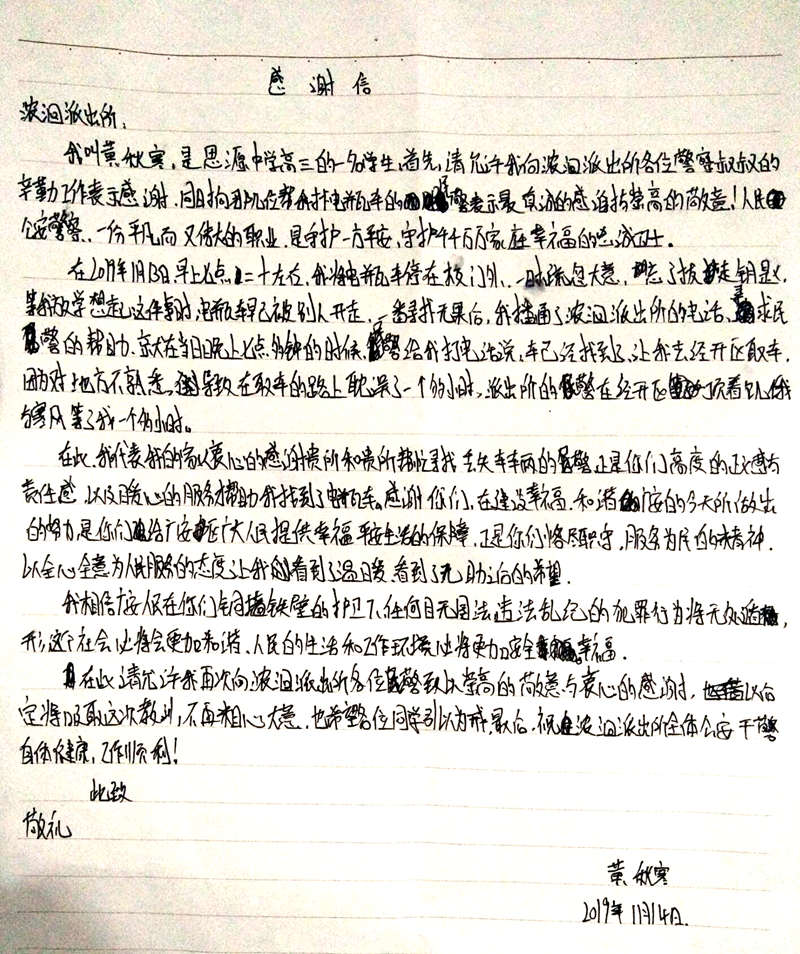 感谢信
浓洄派出所:
我叫黄秋寒,是思源中学高三的一名学生,首先,请允许我向浓洄派出所各位警察叔叔的
辛勤工作表示感谢,同时向那几位帮我找电瓶车的民警表示最真诚的感谢与崇高的敬意!人民
公安警察,一份平凡而又伟大的职业,是守护一方平安、守护千千万万家庭幸福的忠诚卫士。
在2019年11月13日早上七点二十左右,我将电瓶车停在校门外,一时疏忽大意,忘了拔走钥匙,
等我放学想起这件事时,电瓶车早已被别人开走,一番寻找无果后,我播通了浓洄派出所的电话,寻求民
警的帮助。就在当日晚上七点多钟的时候,民警给我打电话说,车已经找到了,让我去经开区取车,
因为对地方不熟悉,导致在取车的路上耽误了一个多小时,派出所的民警在经开区顶着
寒风等了我一个多小时。
在此,我代表我的家人衷心的感谢贵所和贵所帮忙寻找丢失车辆的民警,正是你们高度的正义与
责任感,以及暖心的服务帮助我找到了电瓶车。感谢你们,在建设幸福、和谐广安的今天所做出
的努力,是你们给广安区广大人民提供幸福平安生活的保障,正是你们恪尽职守,服务为民的精神,
以全心全意为人民服务的态度让我们看到了温暖,看到了无助之后的希望。
我相信广安区在你们铜墙铁壁的护卫下,任何目无国法违法乱纪的犯罪行为将无处遁
形,这个社会必将会更加和谐、人民的生活和工作环境必将更加安全、幸福。
在此请允许我再次向浓洄派出所各位民警致以崇高的敬意与衷心的感谢,以后
定将吸取这次教训,不再粗心大意,也希望各位同学引以为戒,最后,祝浓洄派出所全体公安干警
身体健康,工作顺利!
此致
敬礼
黄秋寒
2019年11月14日.